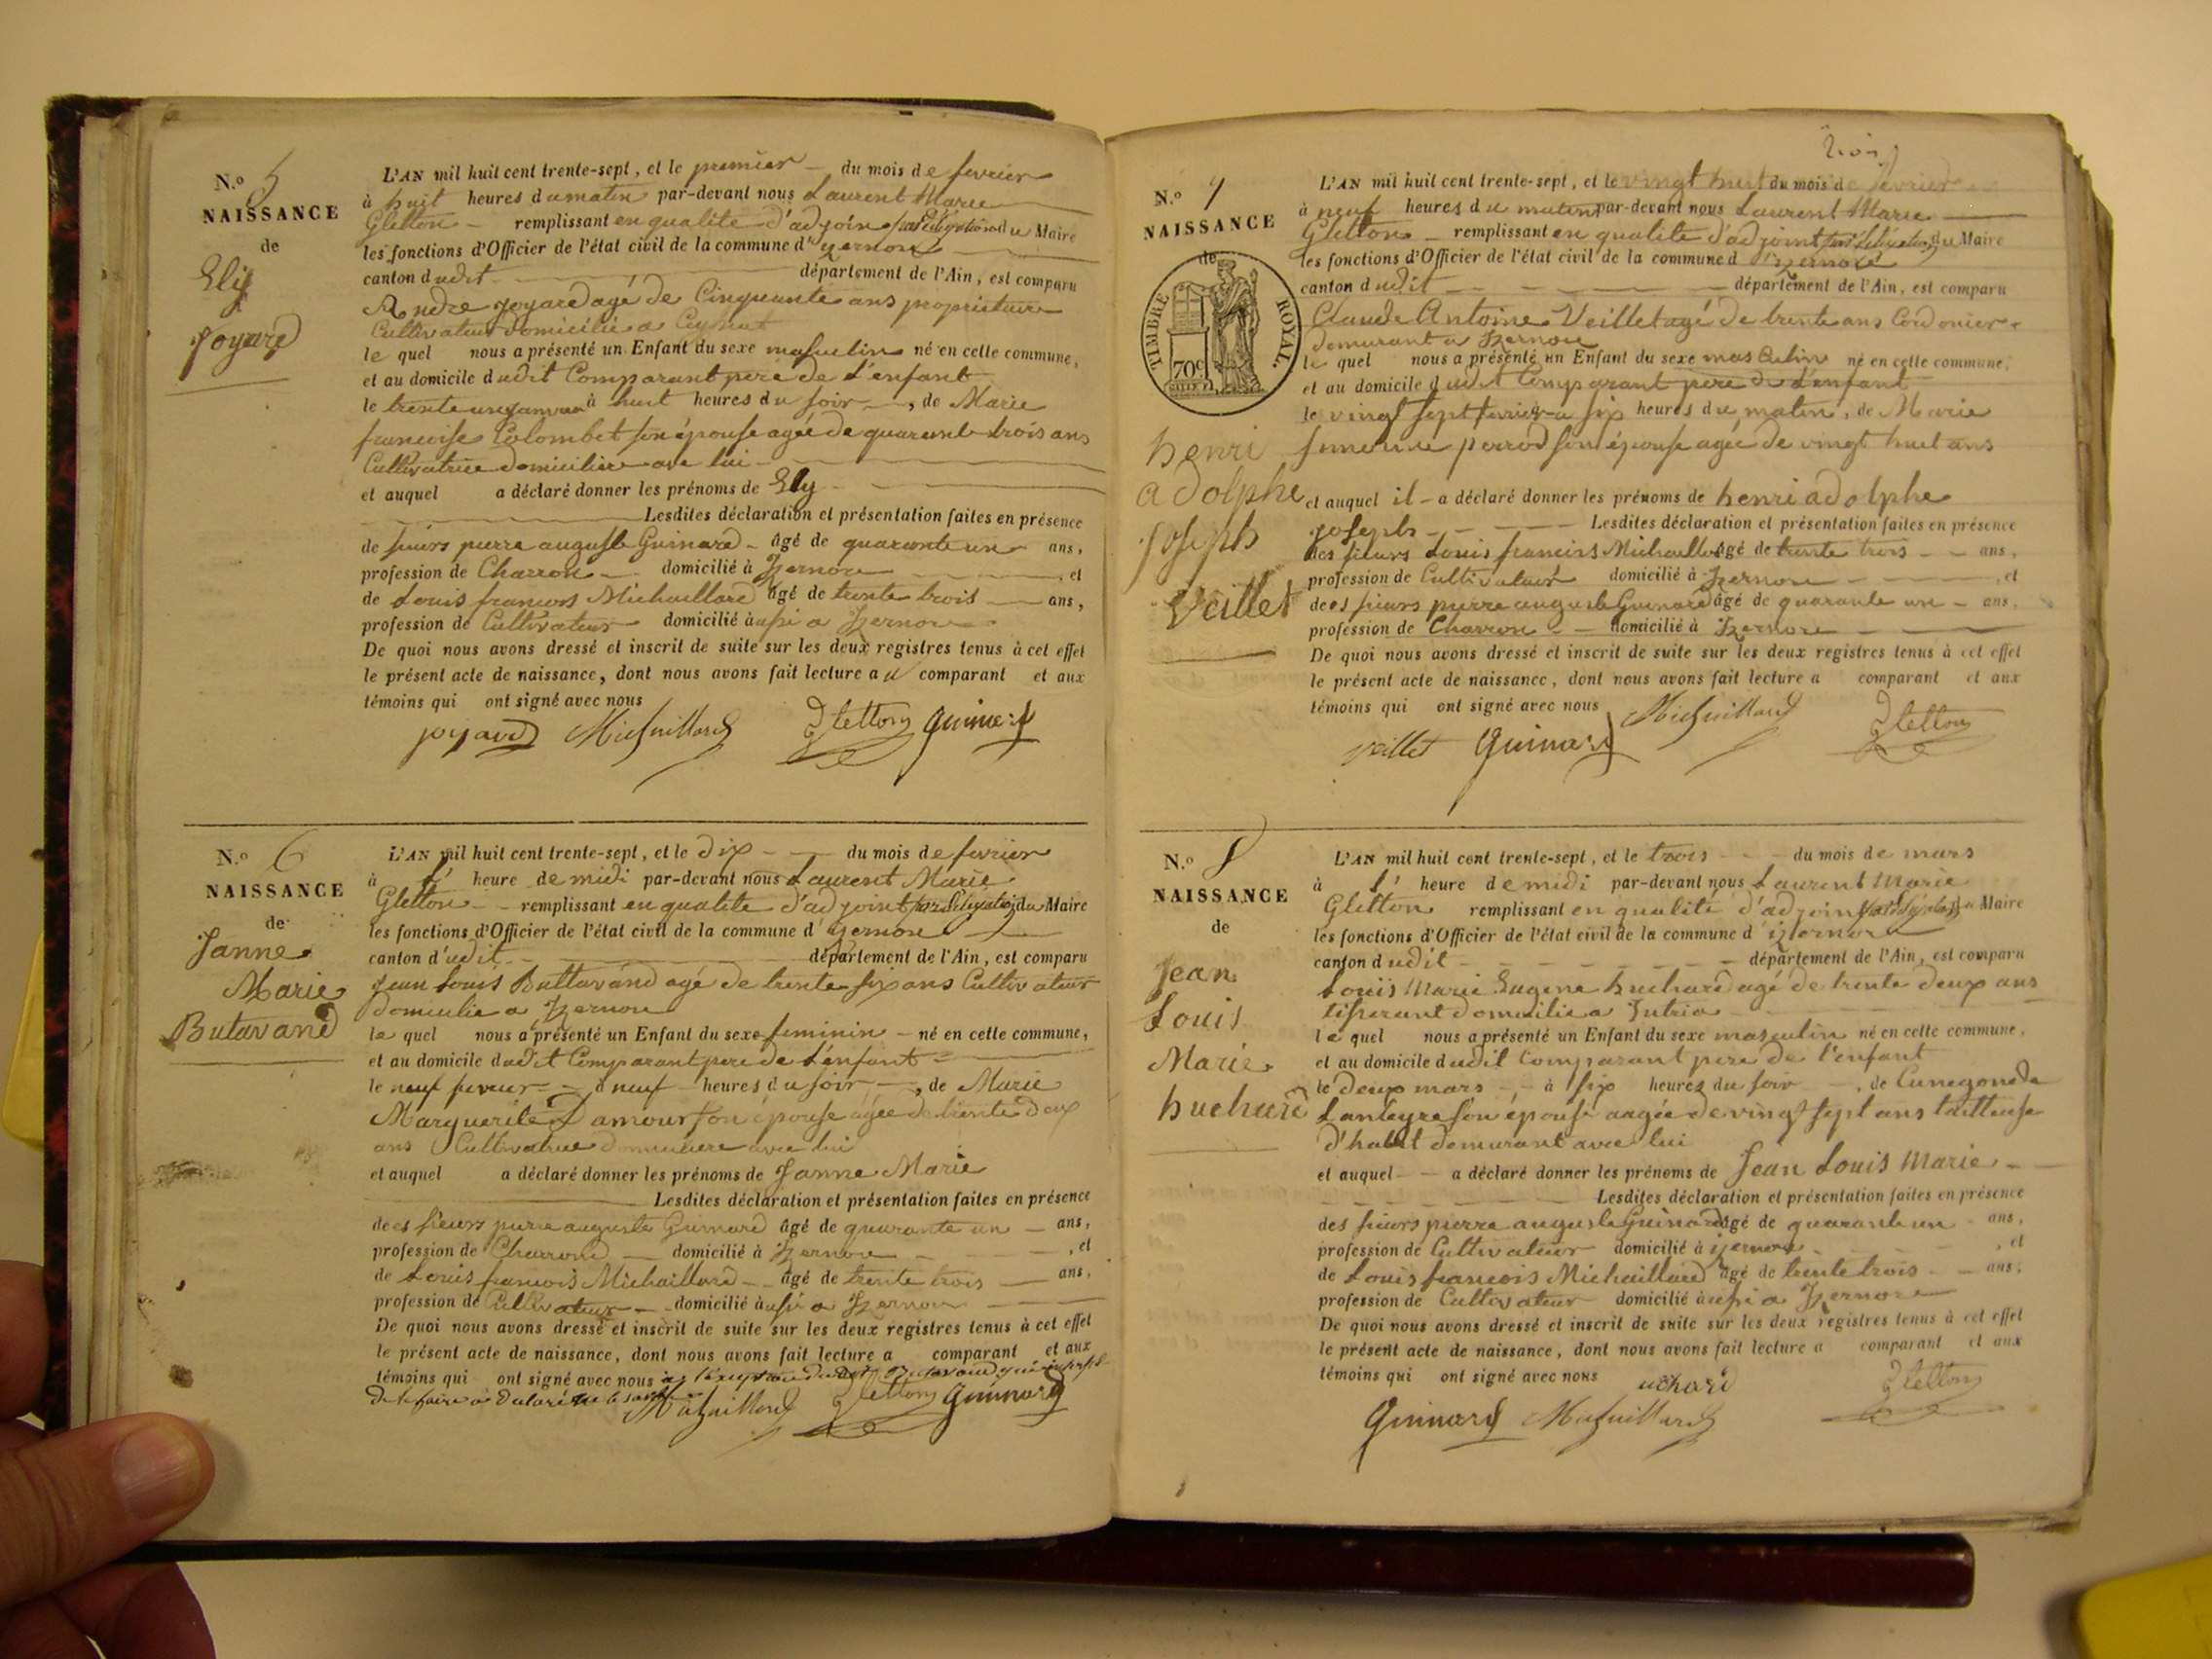 N.o 5
NAISSANCE
de
Ely
Joyard
L'AN mil huit cent trente-sept, et le premier du mois de fevrier
à huit heures du matin par-devant nous Laurent Marie
Gletton remplissant en qualité d'adjoin par délégation du Maire
les fonctions d'Officier de l'état civil de la commune d'izernore
canton dudit département de l'Ain, est comparu
Andre joyard agé de Cinquante ans propriétaire
Cultivateur domicilié a
le quel nous a présenté un Enfant du sexe masculin né en cette commune,
et au domicile dudit Comparant pere de L'enfant
le trente un janvier à huit heures du soir, de Marie
francoise Colombet son épouse agée de quarante trois ans
Cultivatrice domiciliée ave lui
et auquel a déclaré donner les prénoms de Ely
Lesdites déclaration et présentation faites en présence
de sieurs pierre auguste Guinard âgé de quarante un ans,
profession de Charron domicilié à Izernore, et
de Louis francois Michaillard âgé de trente trois ans,
profession de Cultivateur domicilié aussi a Izernore
De quoi nous avons dressé et inscrit de suite sur les deux registres tenus à cet effet
le présent acte de naissance, dont nous avons fait lecture au comparant et aux
témoins qui ont signé avec nous
joyard Michaillard Gletton Guinard
N.o 6
NAISSANCE
de
Janne
Marie
Butavand
L'AN mil huit cent trente-sept, et le dix du mois de fevrier
à L' heure de midi par-devant nous Laurent Marie
Gletton remplissant en qualite d'adjoint par délégation du Maire
les fonctions d'Officier de l'état civil de la commune d'izernore
canton d'udit département de l'Ain, est comparu
Jean Louis Buttavand agé de trente six ans Cultivateur
domicilie a Izernore
le quel nous a présenté un Enfant du sexe feminin né en cette commune,
et au domicile dudit Comparant pere de L'enfant
le neuf fevrier à neuf heures du soir, de Marie
Marguerite D'amour son épouse agée de trente deux
ans Cultivatrice domiciliere avec lui
et auquel a déclaré donner les prénoms de Janne Marie
Lesdites déclaration et présentation faites en présence
de es sieurs pierre auguste Guinard âgé de quarante un ans,
profession de Charrond domicilié à Izernore, et
de Louis francois Michaillard âgé de trente trois ans,
profession de Cultivateur domicilié aussi a Izernore
De quoi nous avons dressé et inscrit de suite sur les deux registres tenus à cet effet
le présent acte de naissance, dont nous avons fait lecture a comparant et aux
témoins qui ont signé avec nous a l'exception dudit Butavand
de le faire a
Michaillard Gletton Guinard
trois
N.o 7
NAISSANCE
de
TIMBRE ROYAL
70c
henri
adolphe
joseph
Veillet
L'AN mil huit cent trente-sept, et le vingt huit du mois de fevrier
à neuf heures du matin par-devant nous Laurent Marie
Gletton remplissant en qualité d'adjoint par délégation du Maire
les fonctions d'Officier de l'état civil de la commune d'izernore
canton dudit département de l'Ain, est comparu
Claude Antoine Veillet agé de trente ans Cordonier
demurant a Izernore
le quel nous a présenté un Enfant du sexe masculin né en cette commune,
et au domicile dudit Comparant pere de L'enfant
le vingt sept fevrier a six heures du matin, de Marie
perrod son épouse agée de vingt huit ans
et auquel il a déclaré donner les prénoms de henri adolphe
joseph Lesdites déclaration et présentation faites en présence
des sieurs Louis francois Michaillard âgé de trente trois ans,
profession de Cultivateur domicilié à Izernore, et
de es sieurs pierre auguste Guinard âgé de quarante un ans,
profession de Charron domicilié à Izernore
De quoi nous avons dressé et inscrit de suite sur les deux registres tenus à cet effet
le présent acte de naissance, dont nous avons fait lecture a comparant et aux
témoins qui ont signé avec nous
Michaillard Gletton
veillet Guinard
N.o 8
NAISSANCE
de
Jean
Louis
Marie
huchard
L'AN mil huit cent trente-sept, et le trois du mois de mars
à L' heure de midi par-devant nous Laurent Marie
Gletton remplissant en qualité d'adjoin par délégation du Maire
les fonctions d'Officier de l'état civil de la commune d'izernore
canton dudit département de l'Ain, est comparu
Louis Marie Eugene huchard agé de trente deux ans
tisserant domicilié a Intria
le quel nous a présenté un Enfant du sexe masculin né en cette commune,
et au domicile dudit Comparant pere de l'enfant
le deux mars à six heures du soir, de Cunegonde
Lanteyre son épouse aagée de vingt sept ans tailleuse
d'habit demurant avec lui
et auquel a déclaré donner les prénoms de Jean Louis Marie
Lesdites déclaration et présentation faites en présence
des sieurs pierre auguste Guinard âgé de quarante un ans,
profession de Cultivateur domicilié à izernore, et
de Louis francois Michaillard âgé de trente trois ans,
profession de Cultivateur domicilié aussi a Izernore
De quoi nous avons dressé et inscrit de suite sur les deux registres tenus à cet effet
le présent acte de naissance, dont nous avons fait lecture a comparant et aux
témoins qui ont signé avec nous uchard Gletton
Guinard Michaillard